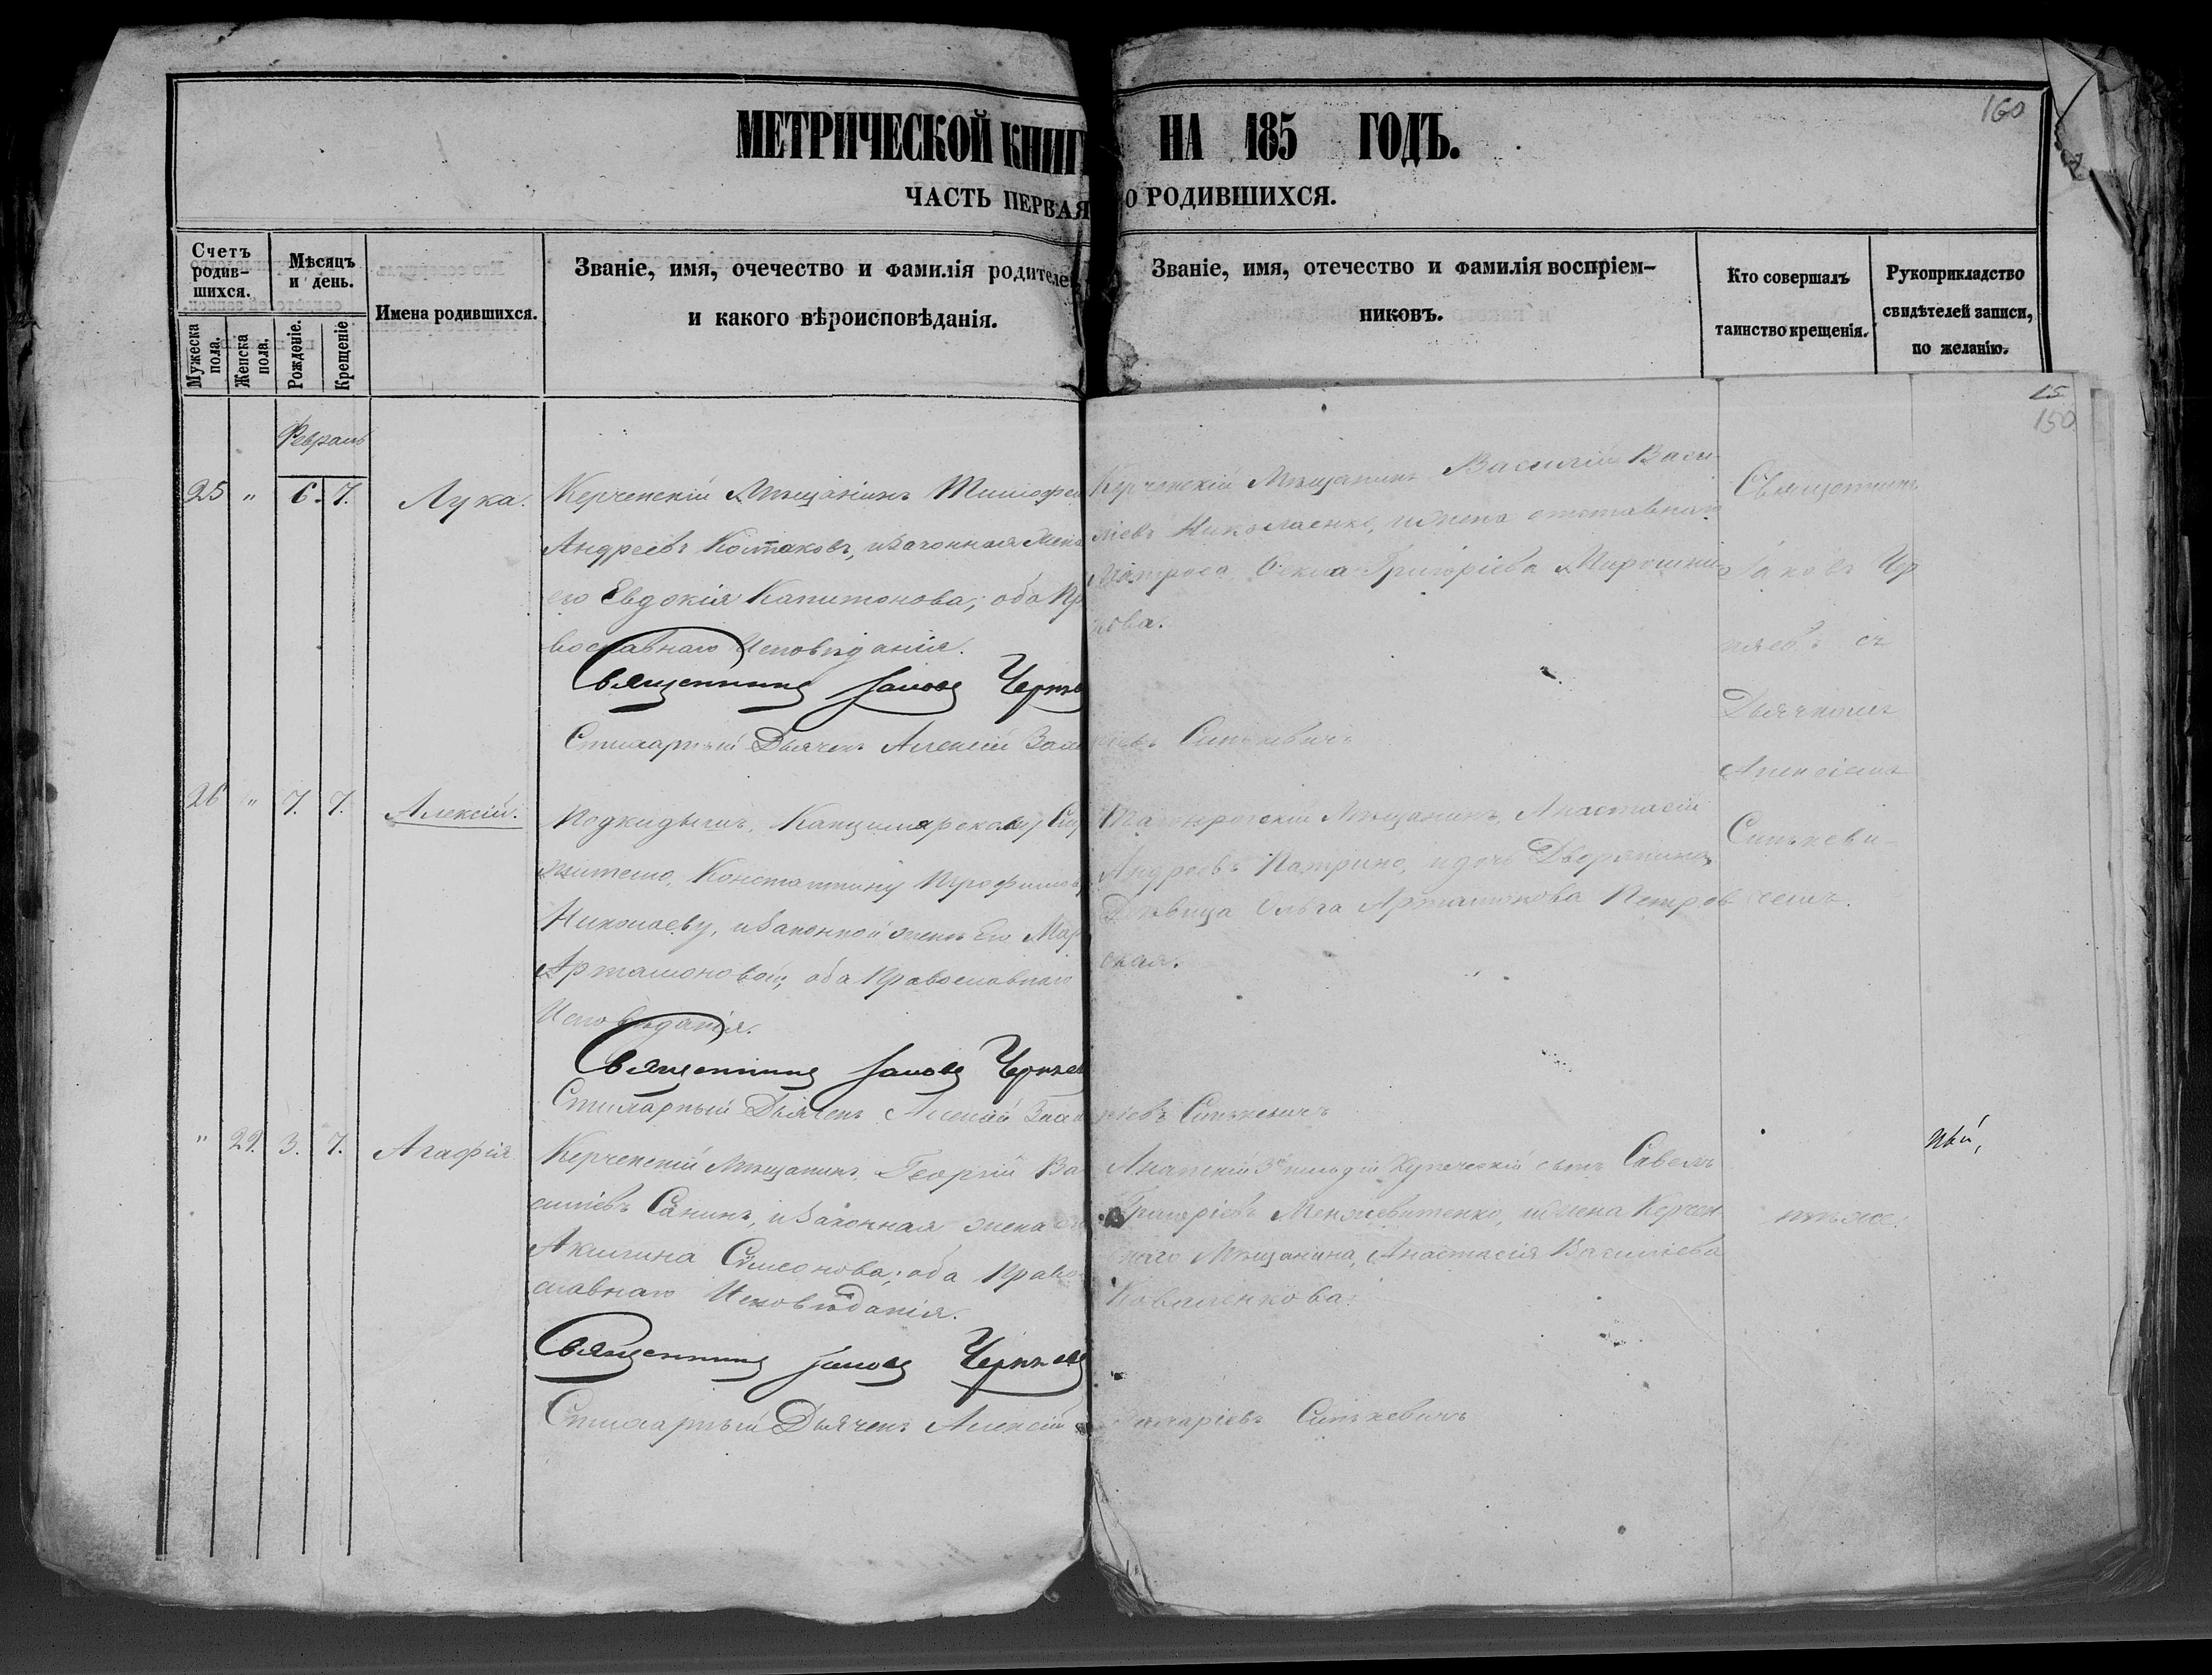 160
МЕТРИЧЕСКОЙ КНИГ НА 185 ГОДЪ.
ЧАСТЬ ПЕРВАЯ О РОДИВШИХСЯ.
Счетъ родив-
шихся.
Мѣсяцъ
и день.
Мужеска пола.
Женска пола.
Рожденіе.
Крещеніе
Имена родившихся.
Званіе, имя, очечество и фамилія родителе
и какого вѣроисповѣданія.
Званіе, имя, отечество и фамилія воспріем-
никовъ.
Кто совершалъ
таинство крещенія.
Рукоприкладство
свидѣтелей записи,
по желанію.
15
150
Февраль
25 " 6. 7. Лука.
Керченскій Мѣщанинъ Тимофей
Андреевъ Костаковъ, и Законная Жена
его Евдокія Капитонова; оба Пр
вославнаго Исповѣданія.
Священникъ Іаковъ Черня
Стихарный Дьячекъ Алексій Заха
ріевъ Синькевичъ
Керченскій Мѣщанинъ Василій Васи-
ліевъ Николаенко, и жена отставнаго
Матроса Григоріева Мирошни
кова.
Священникъ
Іаковъ Чер
няевъ съ
Дьячкомъ
Алексіемъ
Синькеви-
чемъ.
26 " 7. 7. Алексій.
Подкидышъ, Канцелярскому Слу
жителю, Константину Трофимов
Николаеву, и Законной женѣ Его Мар
Артамоновой; оба Православнаго
Исповѣданія.
Священникъ Іаковъ Черняев
Стихарный Дьячекъ Алексій Заха
ріевъ Синькевичъ
Таганрогскій Мѣщанинъ, Анастасій
Андреевъ Патрино, и дочь Дворянина,
Дѣвица Ольга Артамонова Петров
ская.
" 29. 3. 7. Агафія
Керченскій Мѣщанинъ, Георгій Ва
силіевъ Санинъ, и Законная жена его
Акилина Симеонова; оба Право
славнаго Исповѣданія.
Священникъ Іаковъ Черняевъ
Стихарный Дьячекъ Алексій
Захаріевъ Синькевичъ
Анапскій 3й гильдіи Купеческій сынъ Савелъ
Григоріевъ и жена Керчен
скаго Мѣщанина, Анастасія Василіева
Коваленкова.